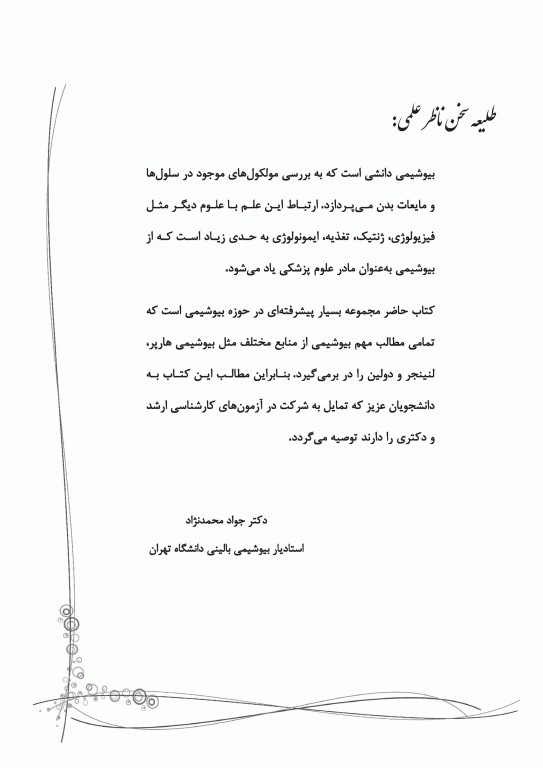 طلیعه سخن ناظر علمی:
بیوشیمی دانشی است که به بررسی مولکول‌های موجود در سلول‌ها
و مایعات بدن می‌پردازد. ارتباط این علم با علوم دیگر مثل
فیزیولوژی، ژنتیک، تغذیه، ایمونولوژی به حدی زیاد است که از
بیوشیمی به‌عنوان مادر علوم پزشکی یاد می‌شود.
کتاب حاضر مجموعه بسیار پیشرفته‌ای در حوزه بیوشیمی است که
تمامی مطالب مهم بیوشیمی از منابع مختلف مثل بیوشیمی هارپر،
لنینجر و دولین را در برمی‌گیرد. بنابراین مطالب این کتاب به
دانشجویان عزیز که تمایل به شرکت در آزمون‌های کارشناسی ارشد
و دکتری را دارند توصیه می‌گردد.
دکتر جواد محمدنژاد
استادیار بیوشیمی بالینی دانشگاه تهران